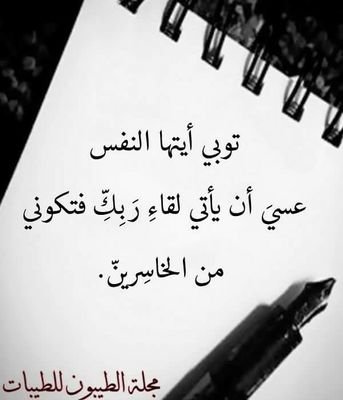 توبي أيتها النفس
عسيَ أن يأتي لقاءِ رَبِكِّ فتكوني
من الخاسِرينّ.
مجلة الطيبون للطيبات